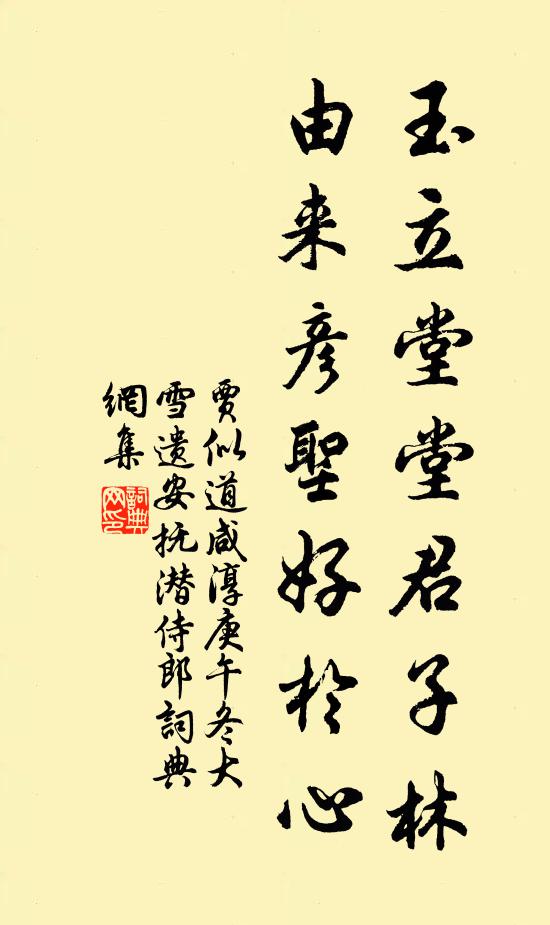 玉立堂堂君子林
由来彦聖好於心
賈似道咸淳庚午冬大
雪遗安抚潜侍郎詞典
網集
詞典
网印